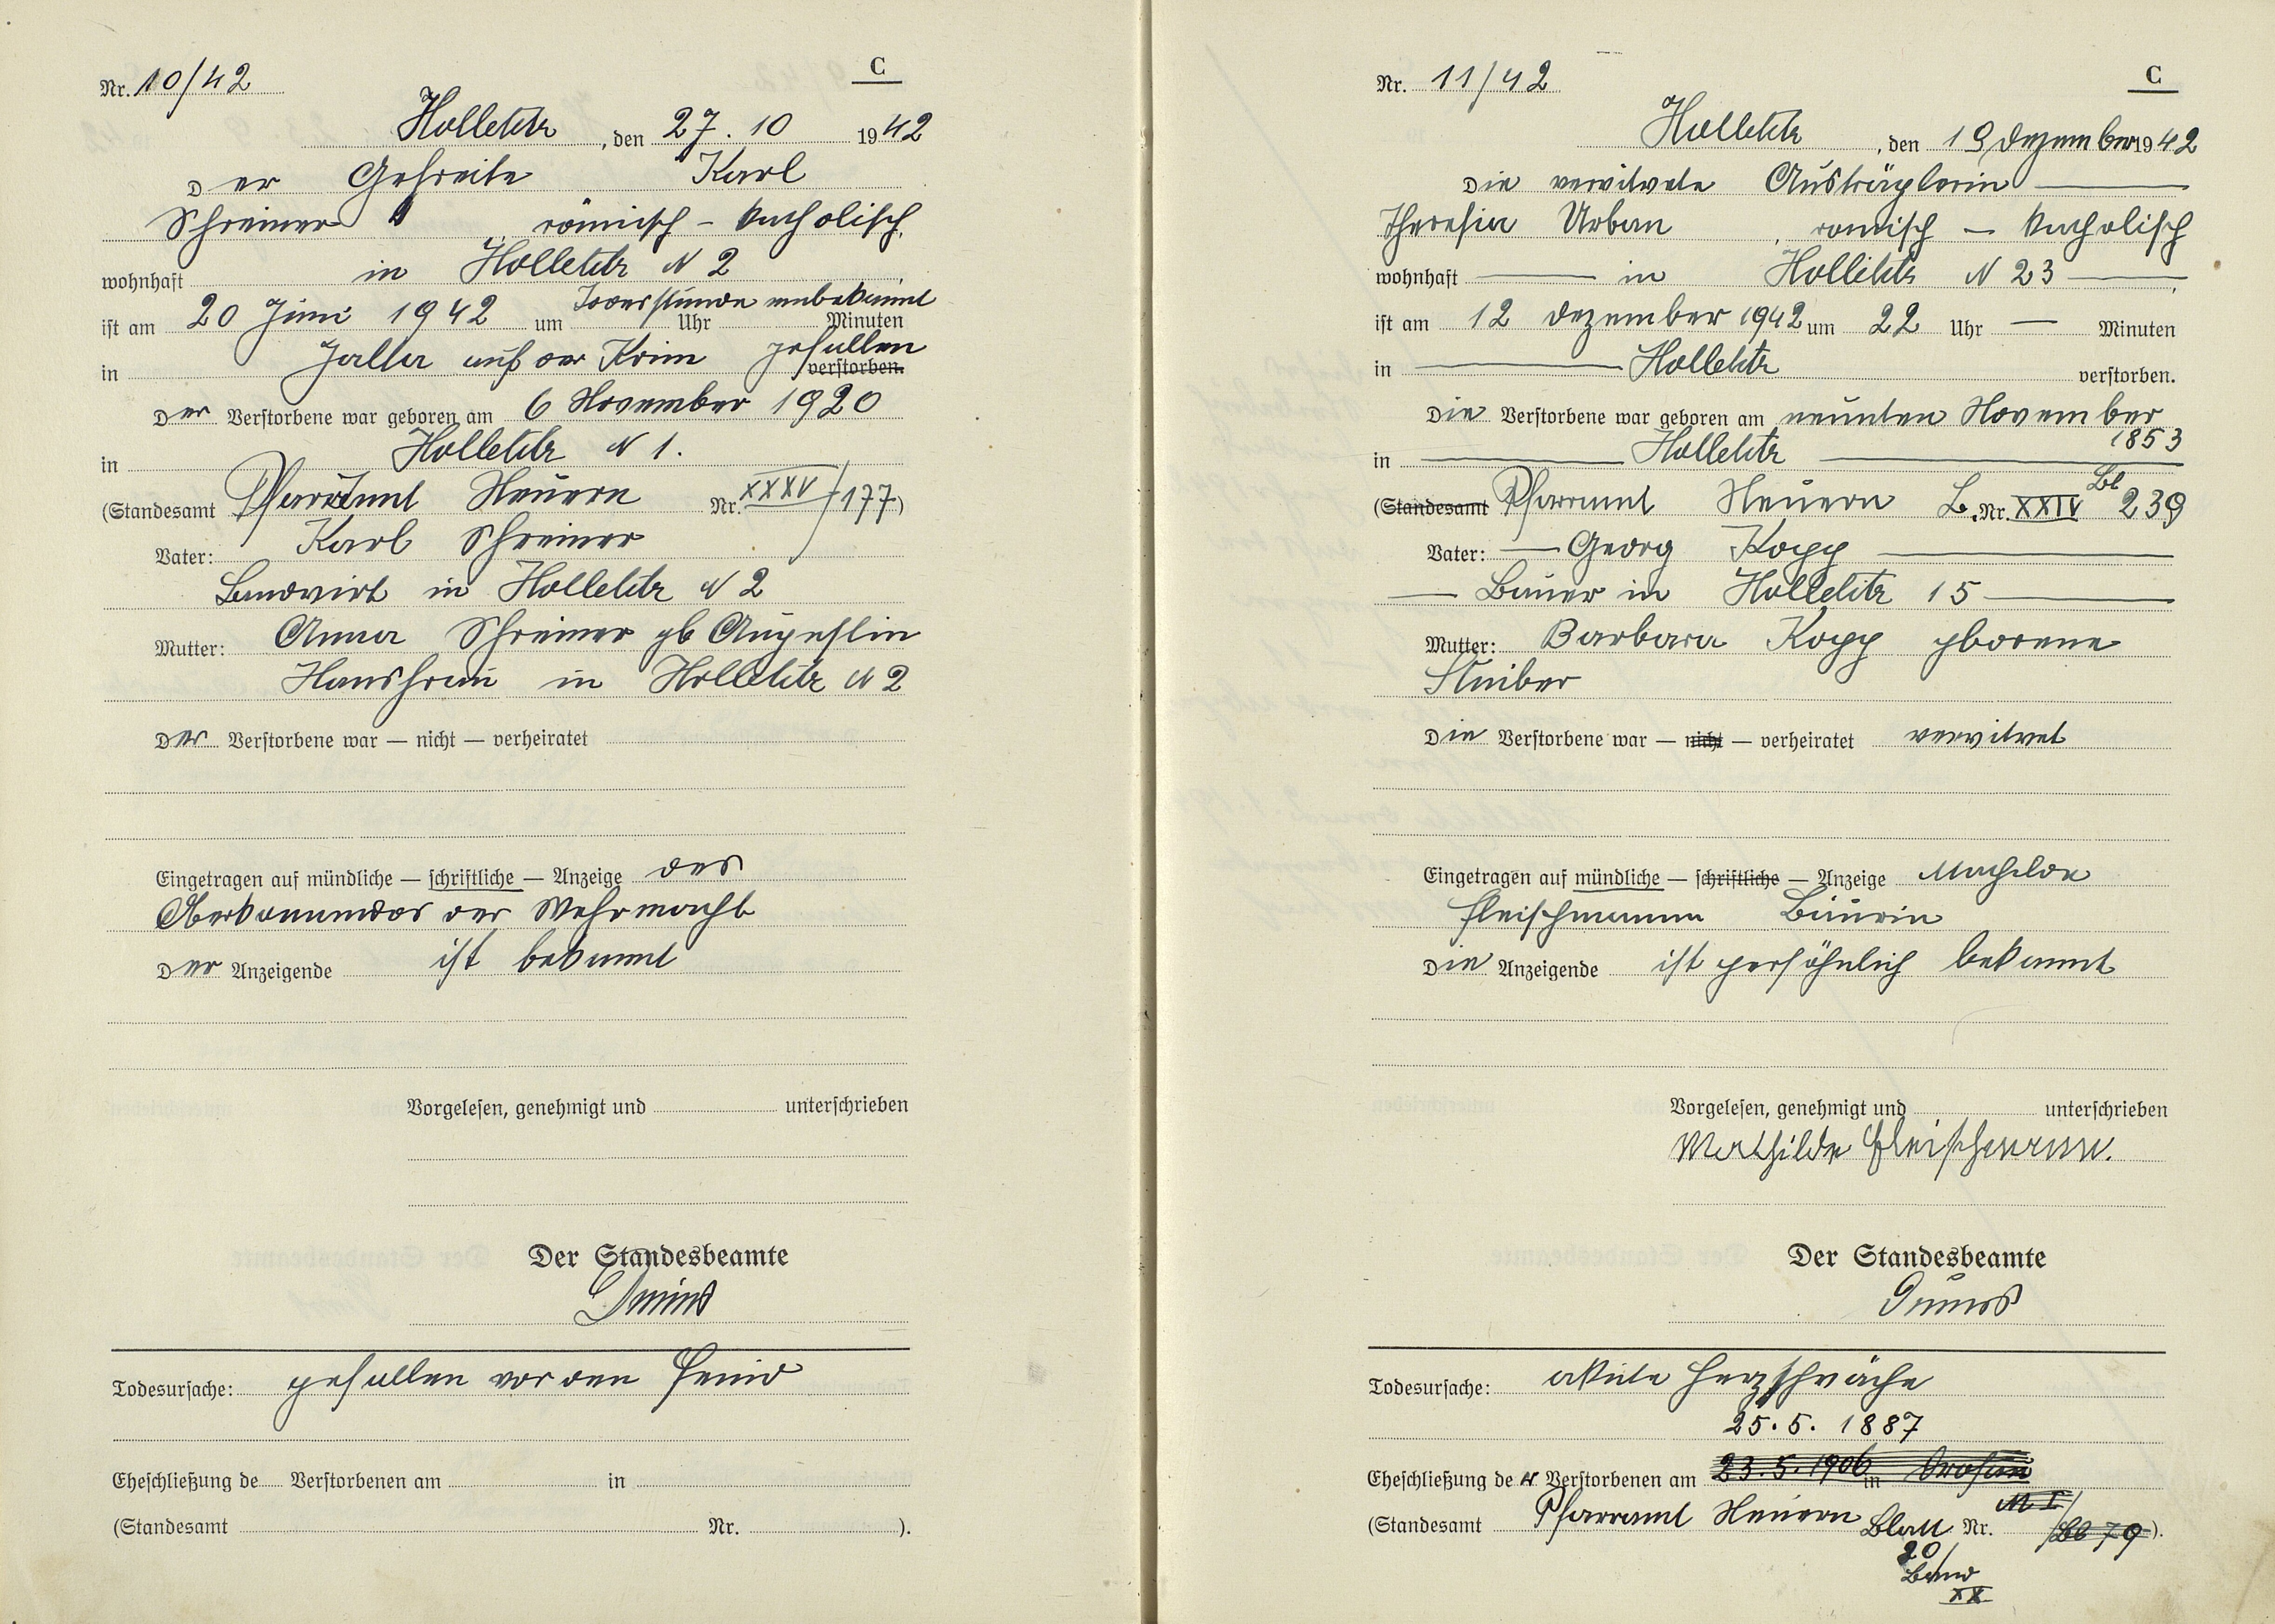 Nr. 10/42
C
Holletitz, den 27. 10 1942
Der Gefreite Karl
Schreiner römisch – katholisch,
wohnhaft in Holletitz N 2
ist am 20 Juni 1942 um Todesstunde unbekannt Uhr Minuten
in Jalta auf der Krim gefallen verstorben.
Der Verstorbene war geboren am 6 November 1920
in Holletitz N 1.
(Standesamt Pfarramt Neuern Nr. XXXV/177)
Vater: Karl Schreiner
Landwirt in Holletitz N 2
Mutter: Anna Schreiner gb Augustin
Hausfrau in Holletitz N 2
Der Verstorbene war — nicht — verheiratet
Eingetragen auf mündliche — schriftliche — Anzeige des
Oberkommandos der Wehrmacht
Der Anzeigende ist bekannt
Vorgelesen, genehmigt und unterschrieben
Der Standesbeamte
Todesursache: gefallen vor den Feind
Eheschließung de Verstorbenen am in
(Standesamt Nr. ).
Nr. 11/42
C
Holletitz, den 19 Dezember 1942
Die verwitwete Austräglerin
Theresia Urban, römisch — katholisch
wohnhaft in Holletitz N 23
ist am 12 Dezember 1942 um 22 Uhr — Minuten
in Holletitz verstorben.
Die Verstorbene war geboren am neunten November
1853
in Holletitz
(Standesamt Pfarramt Neuern B. Nr. XXIV Bl 239
Vater: Georg Kopp
Bauer in Holletitz 15
Mutter: Barbara Kopp gborene
Stuiber
Die Verstorbene war — nicht — verheiratet verwitwet
Eingetragen auf mündliche — schriftliche — Anzeige Mathilde
Fleischmann Bäurin
Die Anzeigende ist persöhnlich bekannt
Vorgelesen, genehmigt und unterschrieben
Mathilde Fleischmann.
Der Standesbeamte
Todesursache: akute Herzschwäche
25. 5. 1887
Eheschließung der Verstorbenen am 23. 5. 1906 in
(Standesamt Pfarramt Neuern Blatt Nr. M I/Bl 79).
20/
Band
XX